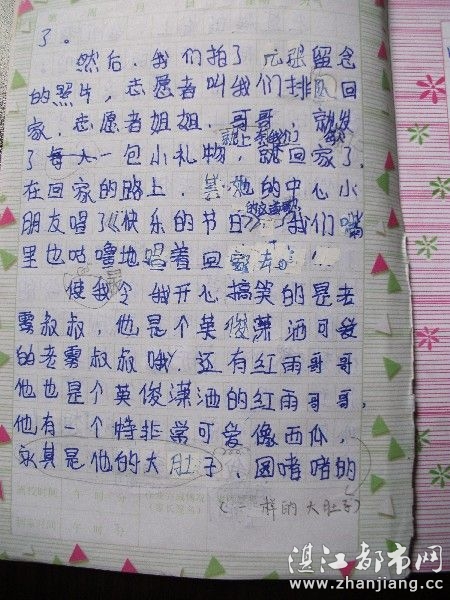 了。
然后,我们拍了 留念
的照片,志愿者叫我们排队回
家,志愿者姐姐、哥哥,就
了每人一包小礼物,就回家了,
在回家的路上, 她的中心小
朋友唱了《快乐的节日》 我们嘴
里也咕噜地唱着回家去
使我令 我开心搞笑的是老
雾叔叔,他是个英俊潇洒可爱
的老雾叔叔哦!还有红雨哥哥
他也是个英俊潇洒的红雨哥哥,
他有一个特非常可爱像西瓜,
其是他的大肚子,圆嘟嘟的
(一样的大肚子)
湛江都市网
www.zhanjiang.cc